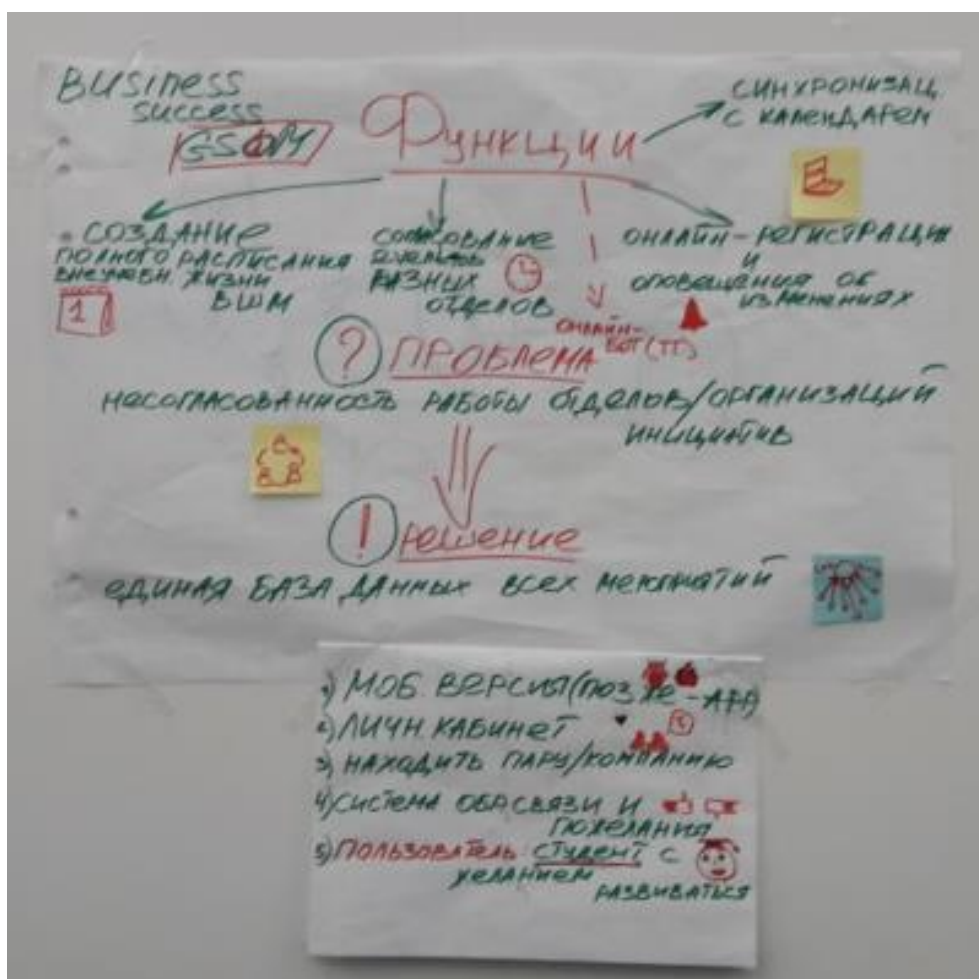 Business
success
GSOM
Функции
СИНХРОНИЗАЦ
С КАЛЕНДАРЕМ
СОЗДАНИЕ
ПОЛНОГО РАСПИСАНИЯ
ВНЕУЧЕБН. ЖИЗНИ
ВШМ
РАЗНЫХ
ОТДЕЛОВ
ОНЛАЙН-РЕГИСТРАЦИЯ
И
ОПОВЕЩЕНИЯ ОБ
ИЗМЕНЕНИЯХ
1
ОНЛАЙН-
БОТ (ТГ)
? ПРОБЛЕМА
НЕСОГЛАСОВАННОСТЬ РАБОТЫ ОТДЕЛОВ/ОРГАНИЗАЦИЙ
ИНИЦИАТИВ
! Решение
ЕДИНАЯ БАЗА ДАННЫХ ВСЕХ МЕРОПРИЯТИЙ
1) МОБ. ВЕРСИЯ (ПОЗЖЕ - APP)
2) ЛИЧН. КАБИНЕТ
3) НАХОДИТЬ ПАРУ/КОМПАНИЮ
4) СИСТЕМА ОБР. СВЯЗИ И
ПОЖЕЛАНИЯ
5) ПОЛЬЗОВАТЕЛЬ: СТУДЕНТ С
ЖЕЛАНИЕМ
РАЗВИВАТЬСЯ